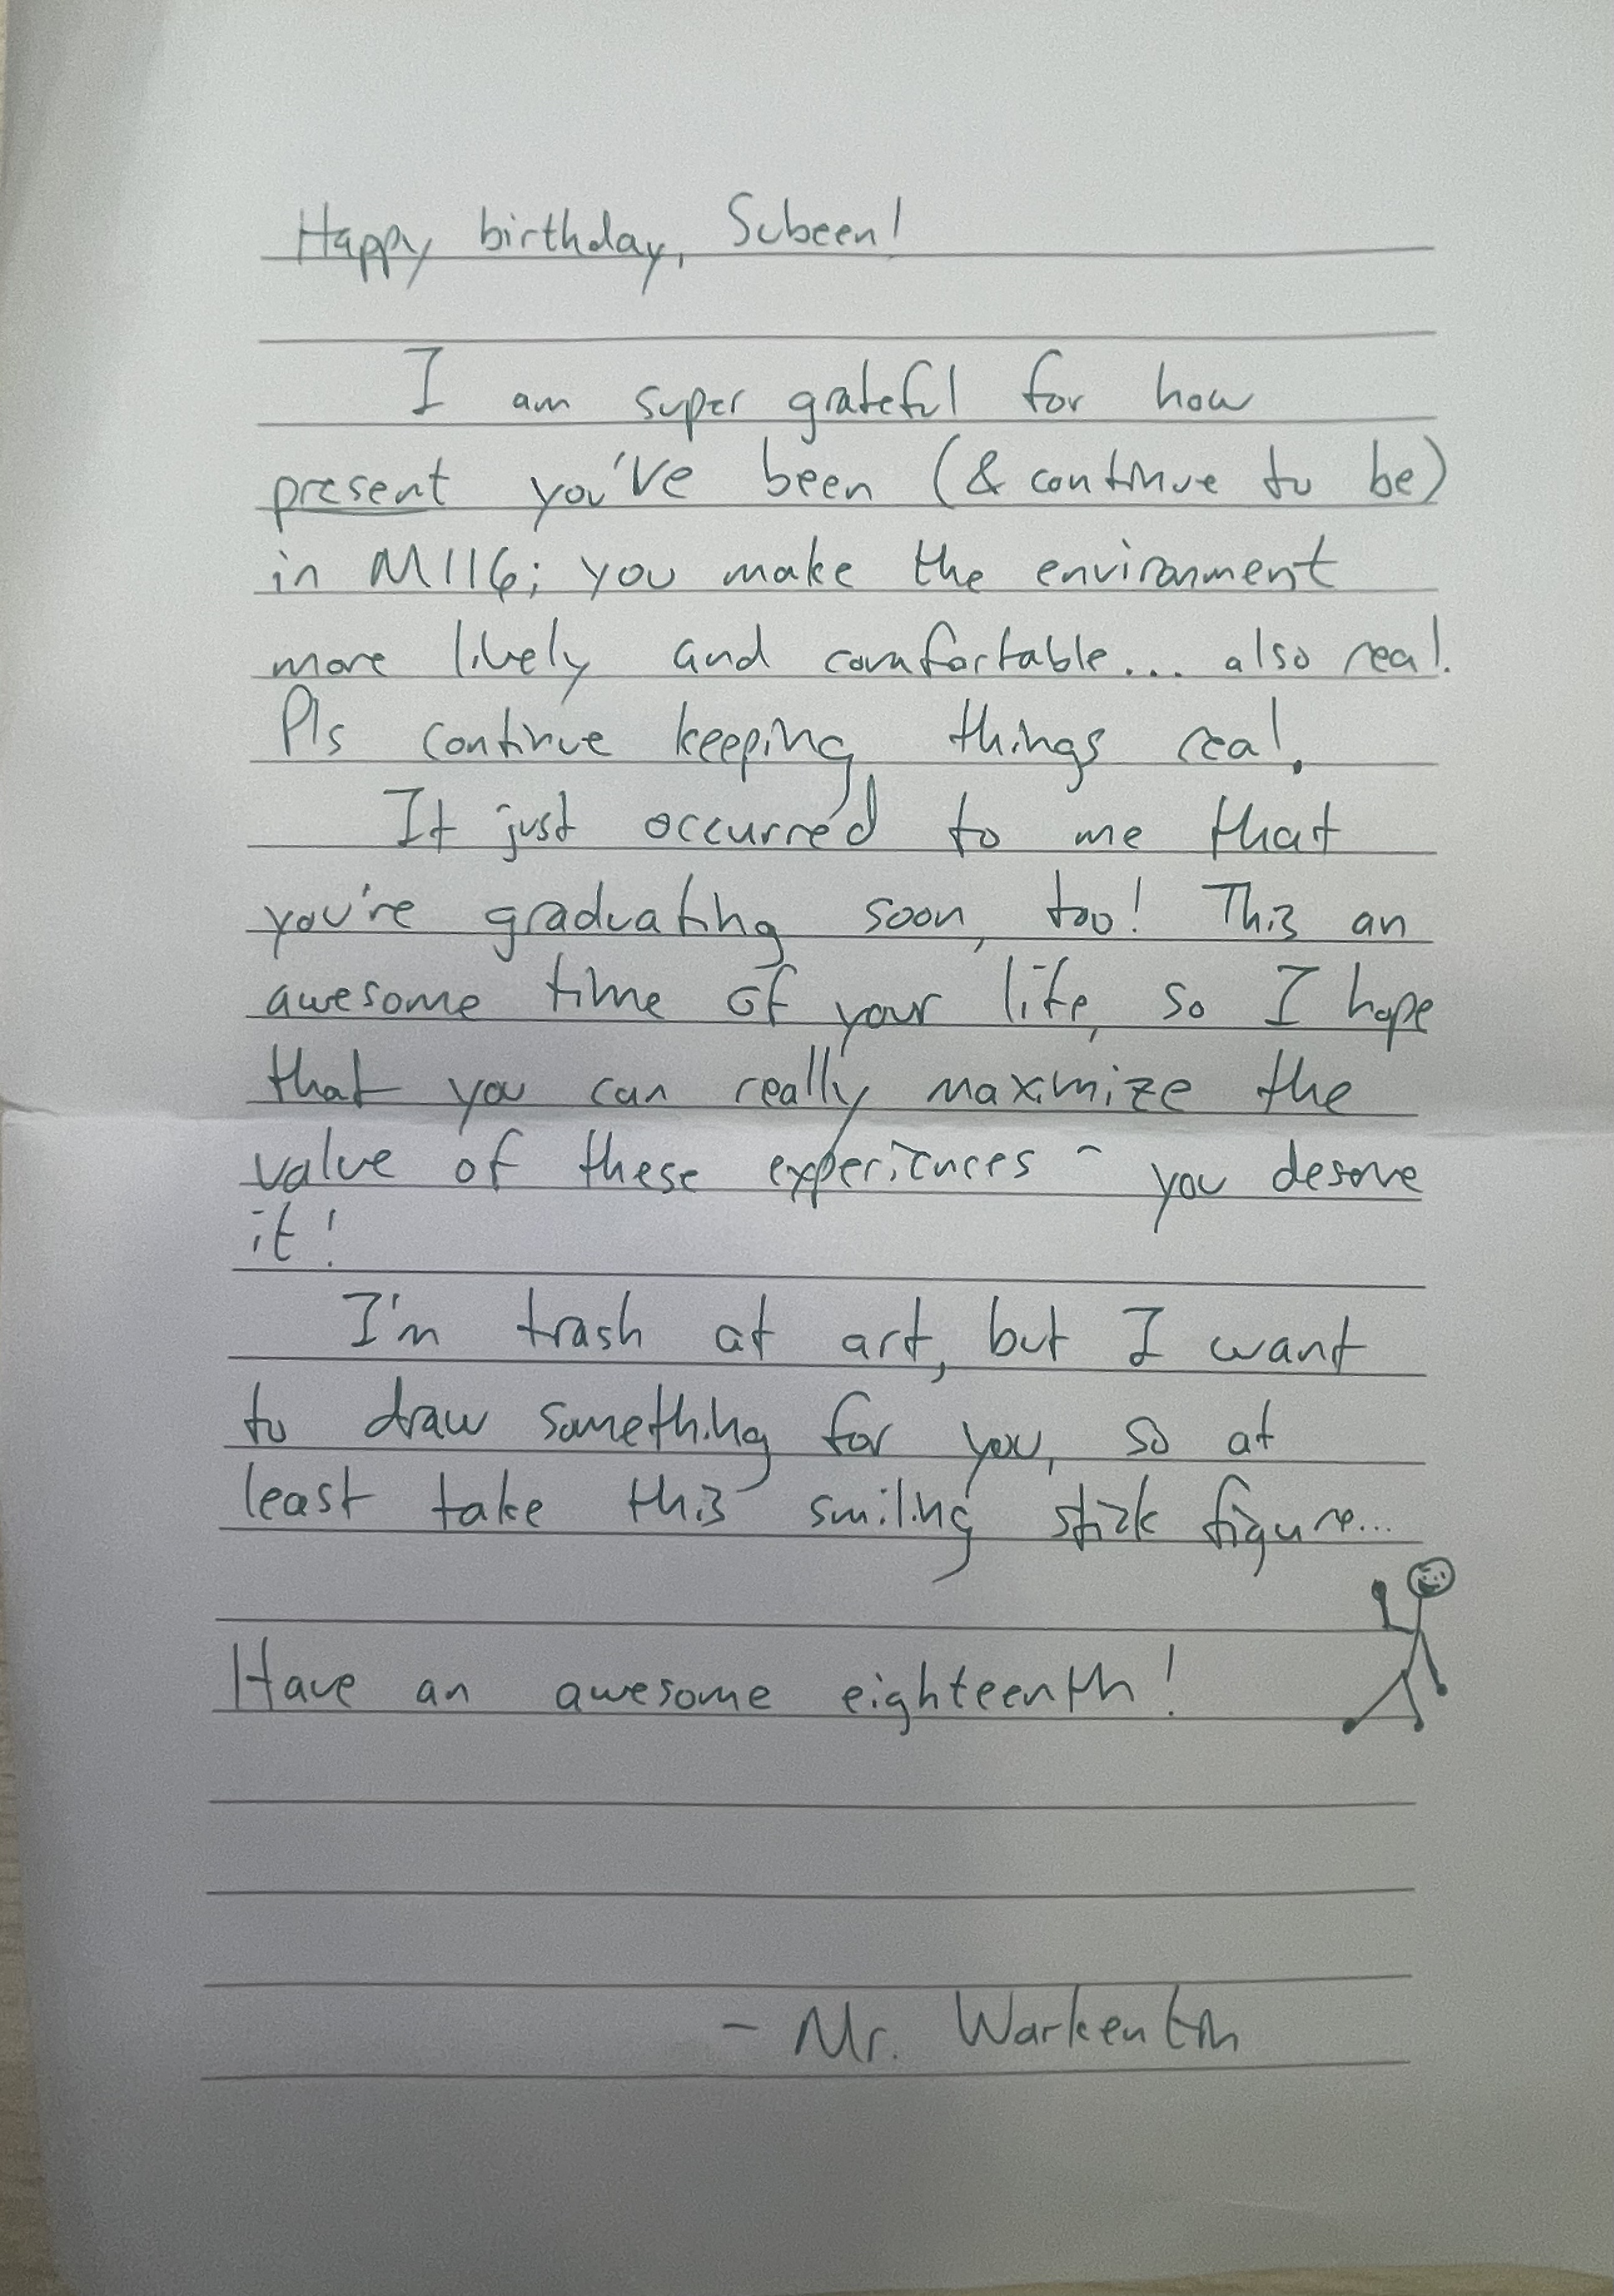 Happy birthday, Subeen!
I am super grateful for how
present you've been (& continue to be)
in M116; you make the environment
more lively and comfortable... also real.
Pls continue keeping things real.
It just occurred to me that
you're graduating soon, too! This an
awesome time of your life, so I hope
that you can really maximize the
value of these experiences - you deserve
it!
I'm trash at art, but I want
to draw something for you, so at
least take this smiling stick figure...
Have an awesome eighteenth!
- Mr. Warkentin